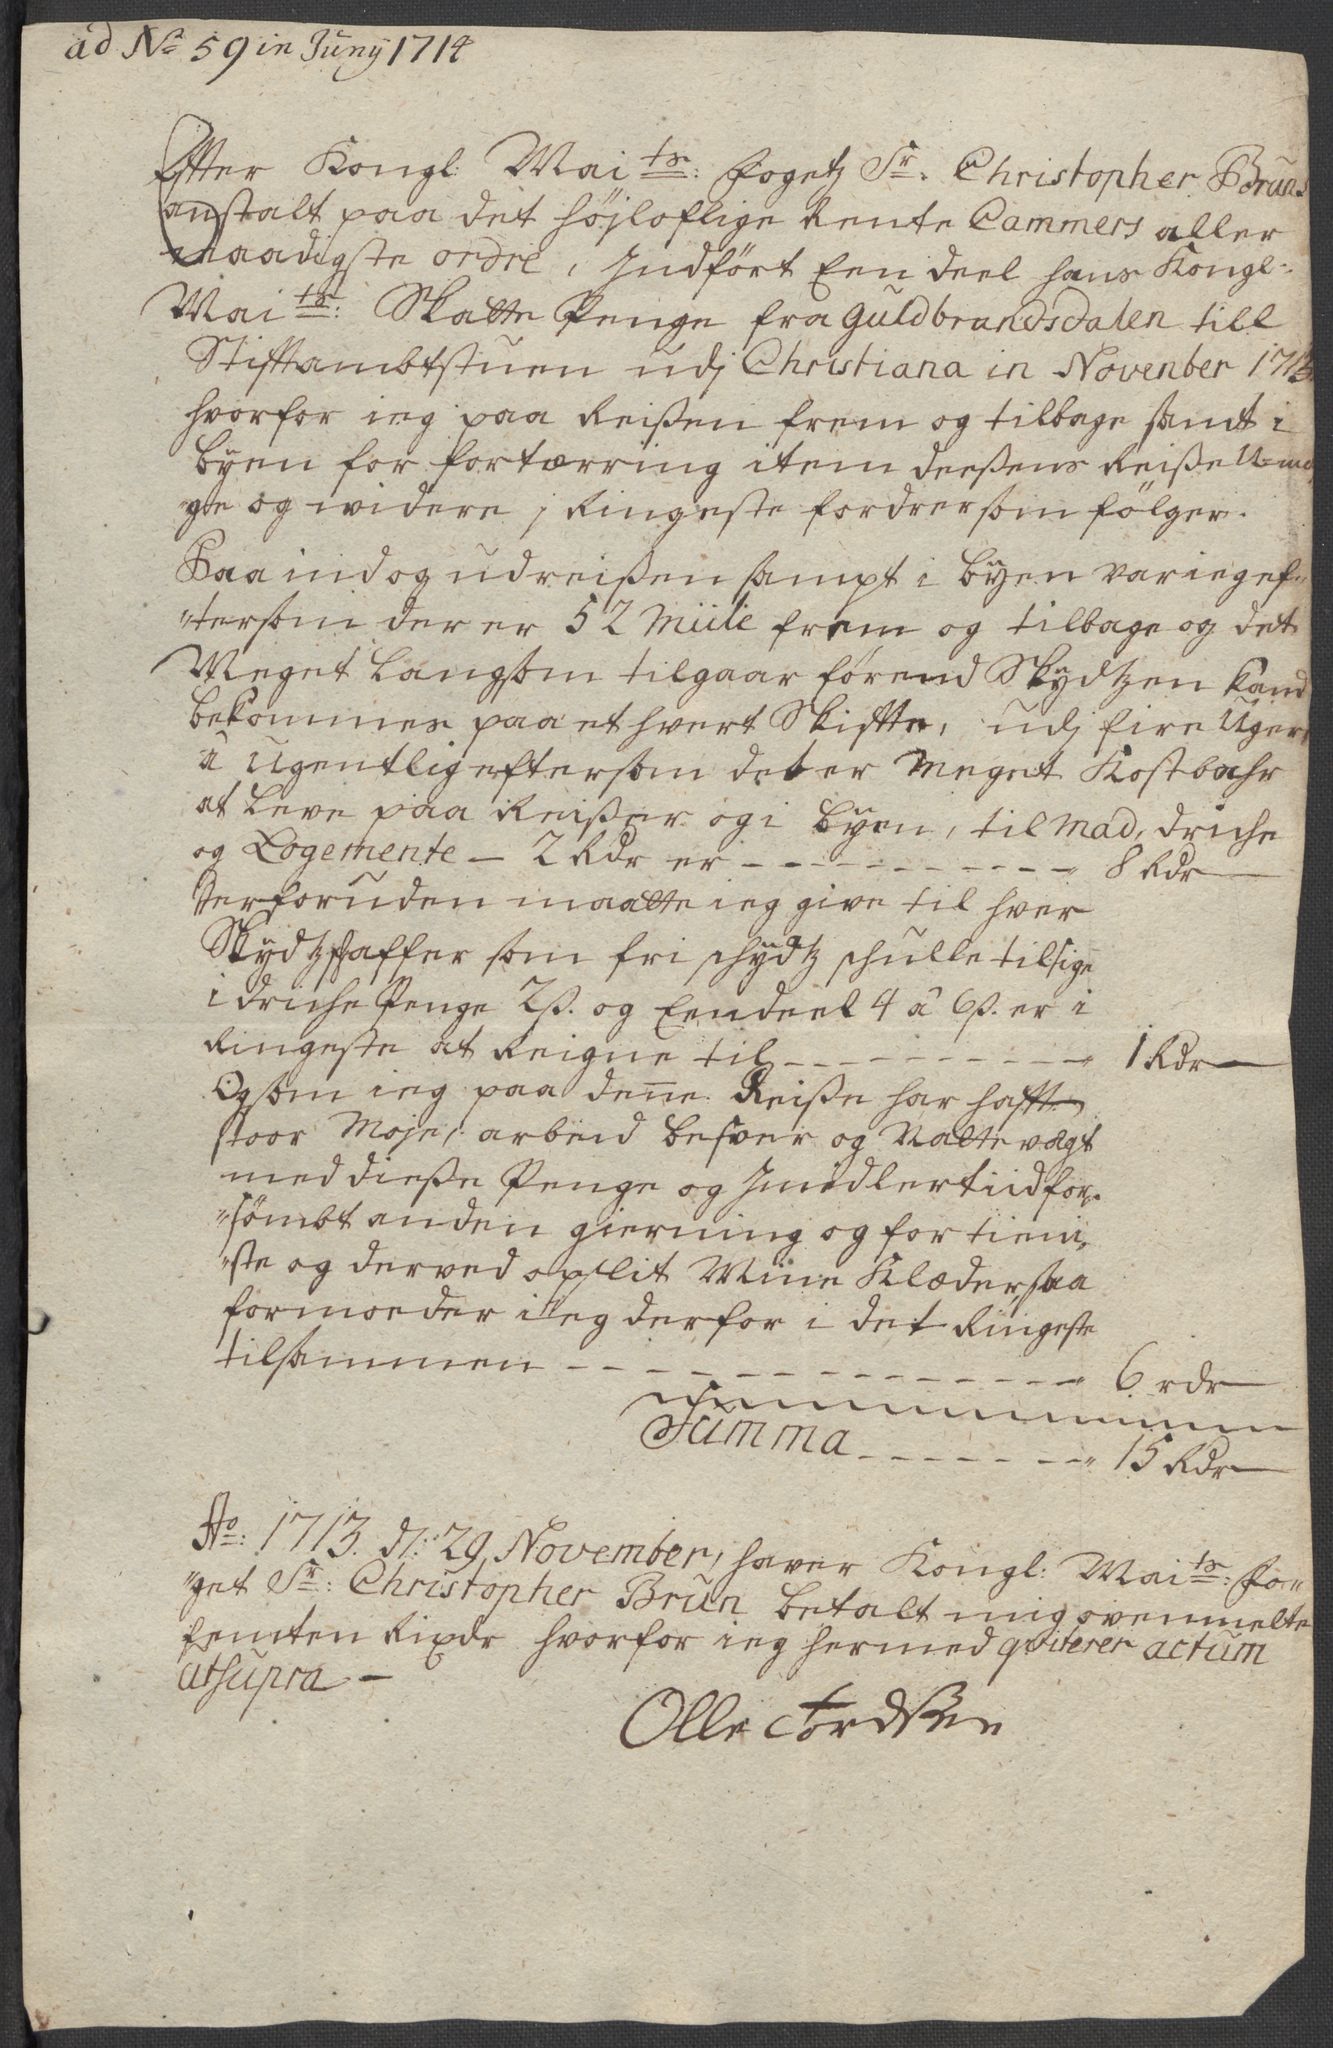 ad No 59 in Juny 1714
Efter Kongl: Maits: Fogetz Sr. Christopher Bruns
anstalt paa det højloflige Rente Cammers aller
naadigste ordre, Indført Een deel hans Kongl:
Maits: Skatte Penge fra Guldbrandsdalen till
Stiftambtstuen udj Christiana in November 1713
hvorfor ieg paa Reißen frem og tilbage samt i
byen for fortærring item deeßens Reiße Uma
"ge og widere, Ringeste fordrer som følger.
Paa ind og udreißen sampt i byen var ieg ef"
"tersom der er 52 Miile frem og tilbage og det
Meget langsom tilgaar førend Skydtzen kand
bekommes paa et hvert Skiffte, udj fire Uger,
a Ugentlig eftersom det er Meget Kostbahr
at leve paa Reißer og i byen, til mad, driche
og Logemente – 2 Rdr er – – – – 8 Rdr
Derforuden maatte ieg give til hver
Skydtzskaffer som fri schydtz schulle tilsige
i driche Penge 2ß. og Eendeel 4 a 6ß. er i
Ringeste at Reigne til – – – – 1 Rdr
Og som ieg paa denne Reiße har hafft
stoor Moje, arbeid besver og Natte vagt
med dieße Penge og Imidlertiid for"
"sømbt anden gierning og fortieni"
"ste og derved opslit Miine Klæder, saa
formoeder ieg derfor i det Ringeste
tilsammen – – – – 6 rdr
Summa – – – – 15 Rdr
Ao: 1713. d: 29 November, haver Kongl: Maits: Fo"
"get Sr: Christopher Brun betalt mig ovenmelte
femten Rixdr hvorfor ieg hermed qviterer actum
utsupra –
Olle Tordßen